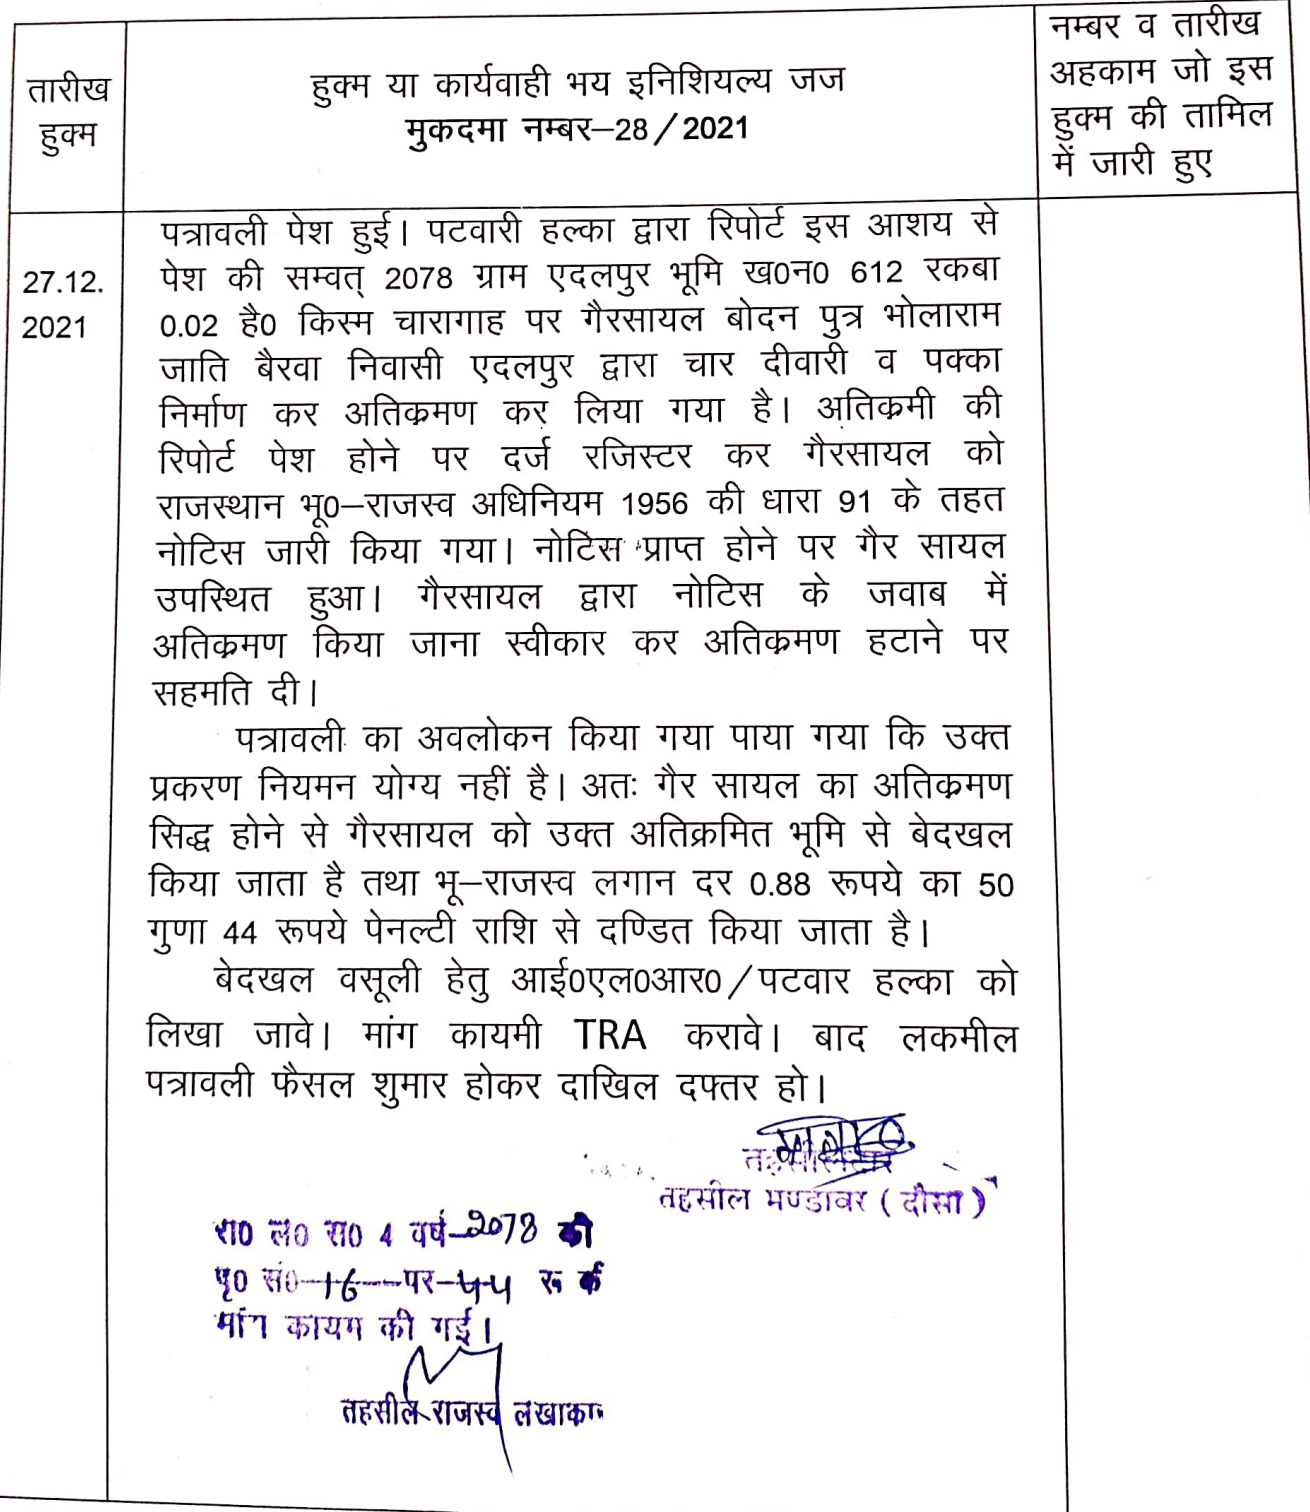 तारीख
हुक्म
हुक्म या कार्यवाही भय इनिशियल्य जज
मुकदमा नम्बर–28/2021
नम्बर व तारीख
अहकाम जो इस
हुक्म की तामिल
में जारी हुए
27.12.
2021
पत्रावली पेश हुई। पटवारी हल्का द्वारा रिपोर्ट इस आशय से
पेश की सम्वत् 2078 ग्राम एदलपुर भूमि ख0न0 612 रकबा
0.02 है0 किस्म चारागाह पर गैरसायल बोदन पुत्र भोलाराम
जाति बैरवा निवासी एदलपुर द्वारा चार दीवारी व पक्का
निर्माण कर अतिक्रमण कर लिया गया है। अतिक्रमी की
रिपोर्ट पेश होने पर दर्ज रजिस्टर कर गैरसायल को
राजस्थान भू0–राजस्व अधिनियम 1956 की धारा 91 के तहत
नोटिस जारी किया गया। नोटिस प्राप्त होने पर गैर सायल
उपस्थित हुआ। गैरसायल द्वारा नोटिस के जवाब में
अतिक्रमण किया जाना स्वीकार कर अतिक्रमण हटाने पर
सहमति दी।
पत्रावली का अवलोकन किया गया पाया गया कि उक्त
प्रकरण नियमन योग्य नहीं है। अतः गैर सायल का अतिक्रमण
सिद्ध होने से गैरसायल को उक्त अतिक्रमित भूमि से बेदखल
किया जाता है तथा भू–राजस्व लगान दर 0.88 रूपये का 50
गुणा 44 रूपये पेनल्टी राशि से दण्डित किया जाता है।
बेदखल वसूली हेतु आई0एल0आर0/पटवार हल्का को
लिखा जावे। मांग कायमी TRA करावे। बाद लकमील
पत्रावली फैसल शुमार होकर दाखिल दफ्तर हो।
तहसीलदार
तहसील मण्डावर (दौसा)
रा0 ल0 रा0 4 वर्ष 2078 की
पृ0 सं0 16 पर 44 रू की
मांग कायम की गई।
तहसील राजस्व लेखाकार